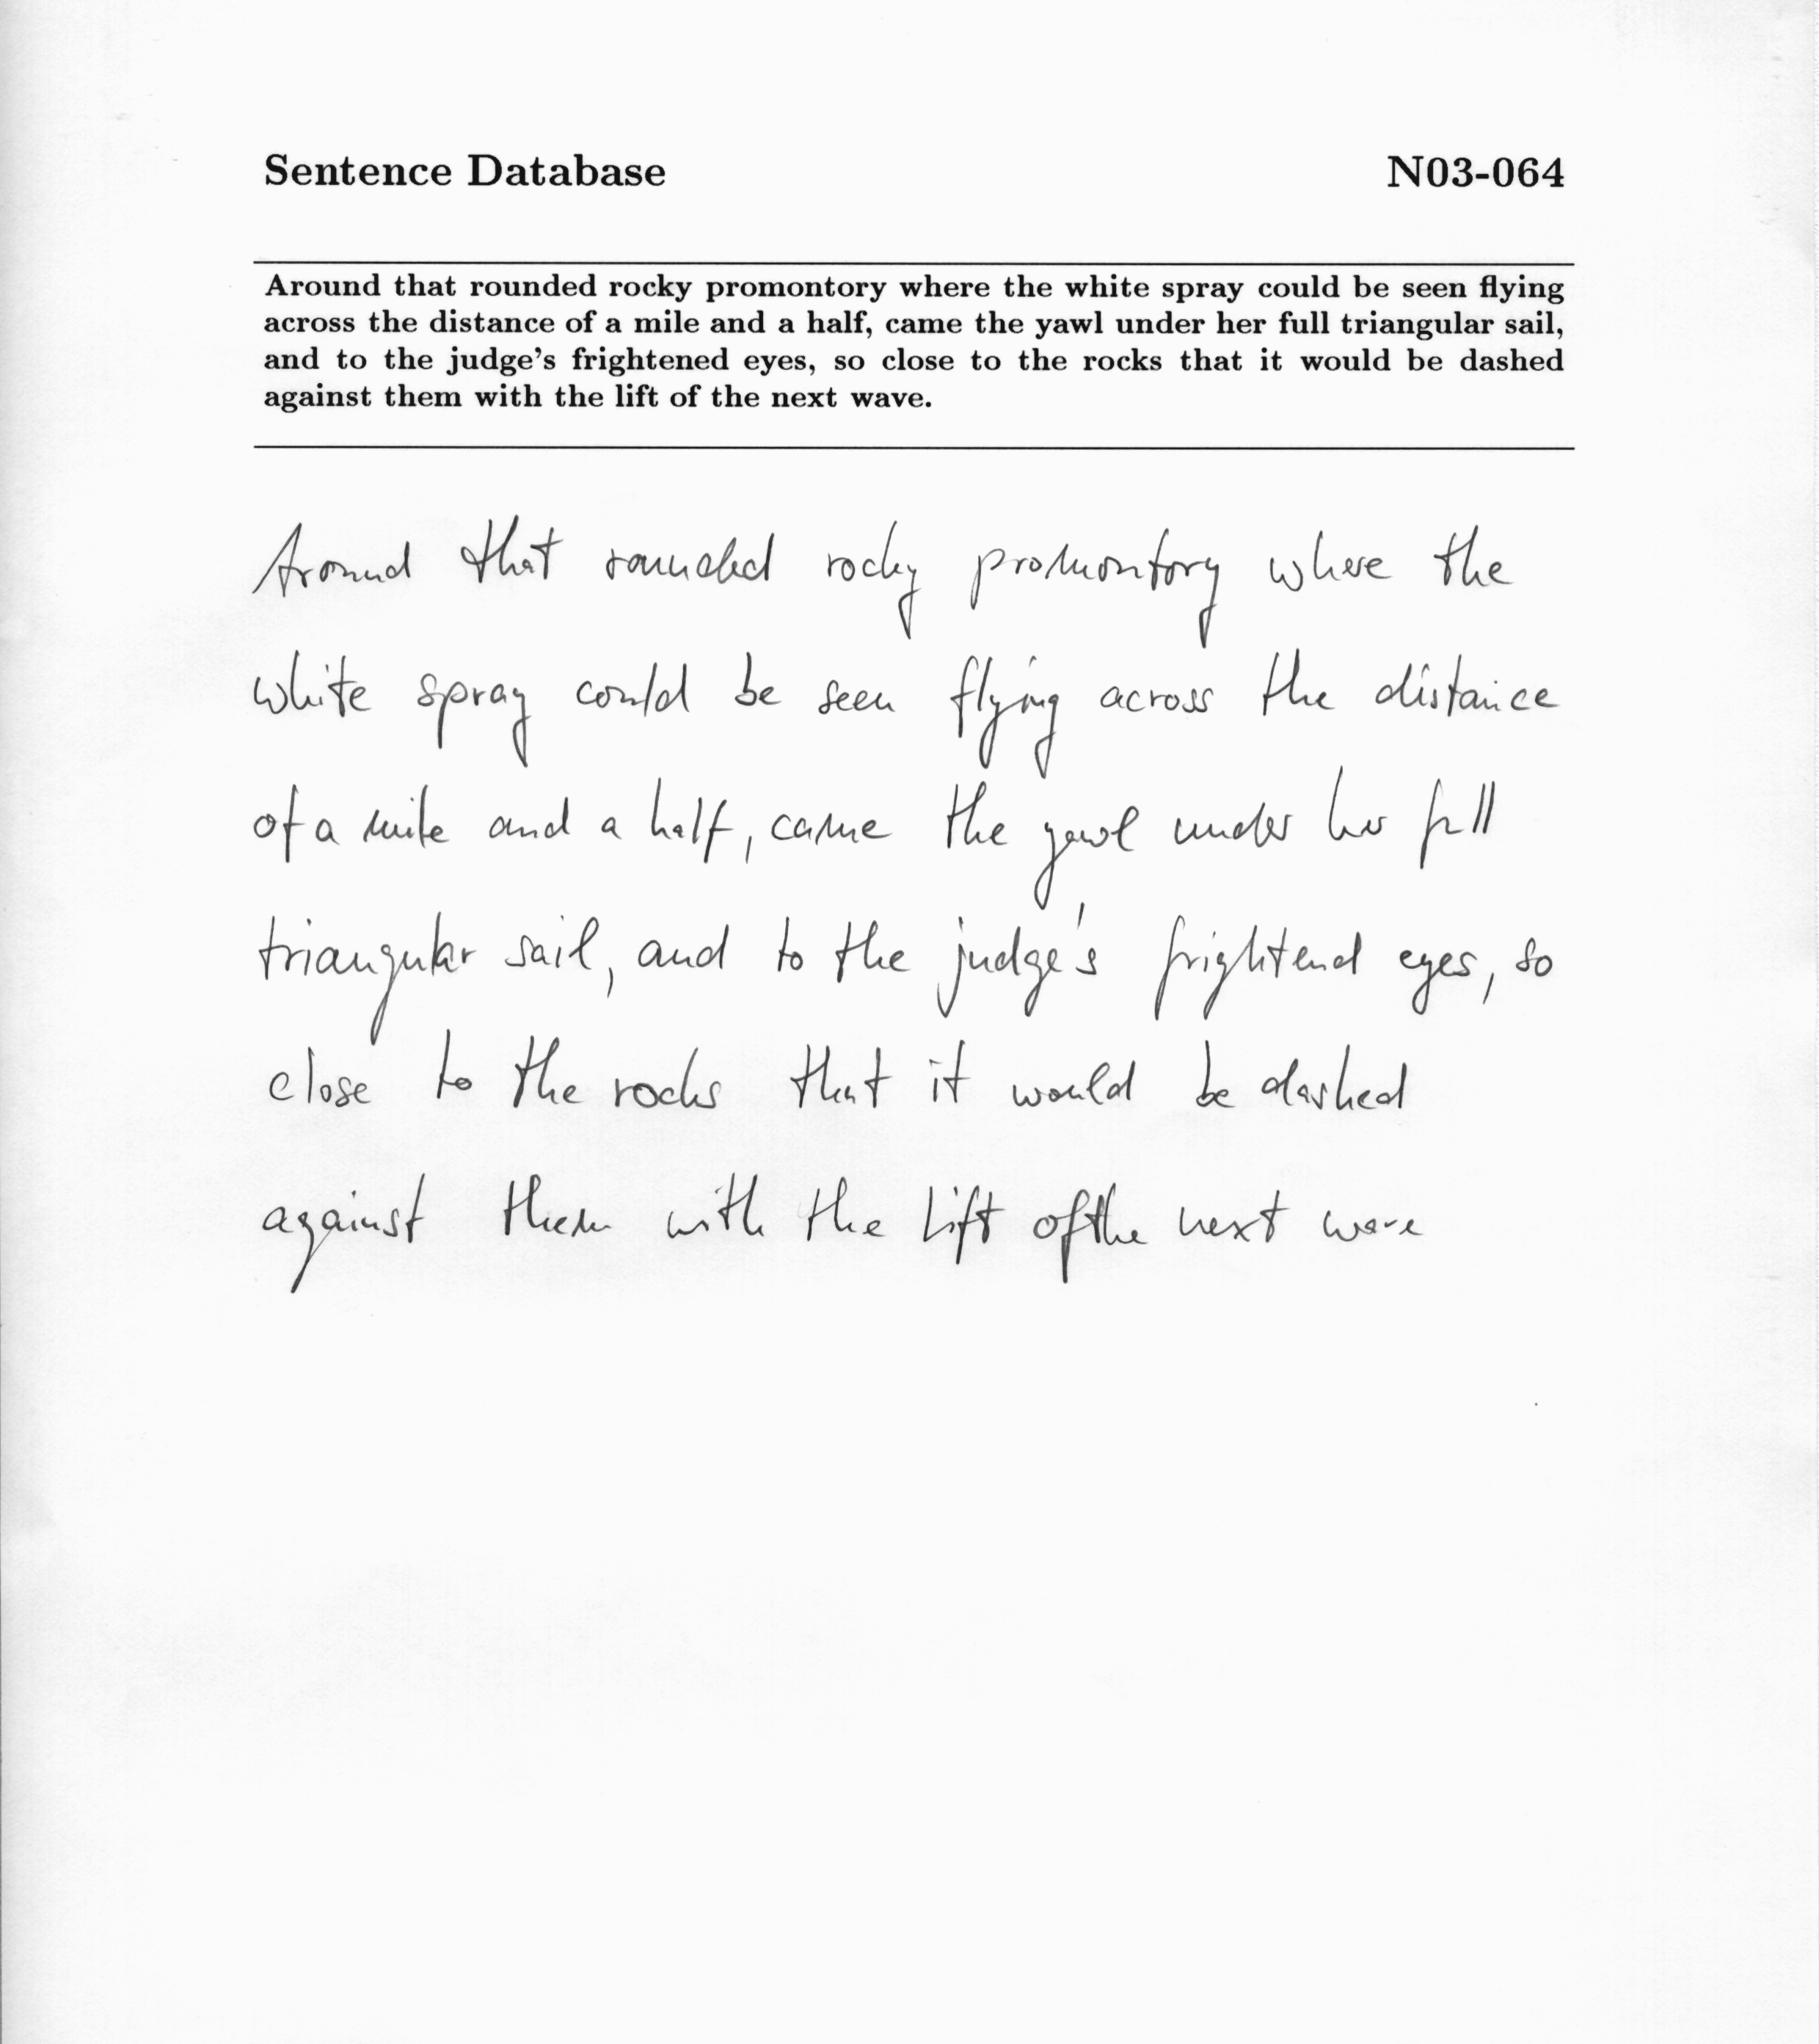 Sentence Database N03-064
Around that rounded rocky promontory where the white spray could be seen flying
across the distance of a mile and a half, came the yawl under her full triangular sail,
and to the judge's frightened eyes, so close to the rocks that it would be dashed
against them with the lift of the next wave.
Around that rounded rocky promontory where the
white spray could be seen flying across the distance
of a mile and a half, came the yawl under her full
triangular sail, and to the judge's frightend eyes, so
close to the rocks that it would be dashed
against them with the lift of the next wave